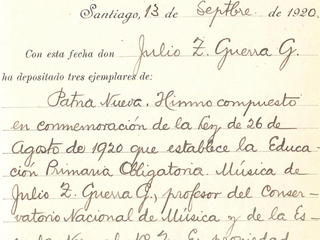 Santiago, 13 de Septbre. de 1920.
Con esta fecha don Julio Z. Guerra G.
ha depositado tres ejemplares de:
Patria Nueva. Himno compuesto
en conmemoración de la Ley de 26 de
Agosto de 1920 que establece la Educa-
ción Primaria Obligatoria. Música de
Julio Z. Guerra G., profesor del Conser-
vatorio Nacional de Música y de la Es-